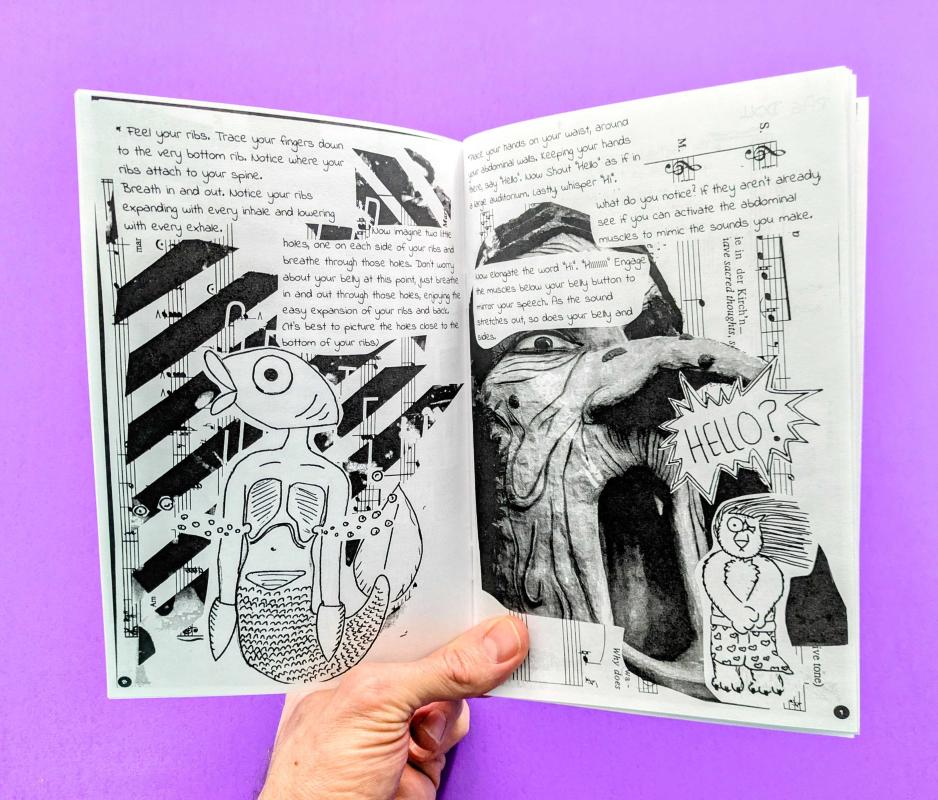 * Feel your ribs. Trace your fingers down
to the very bottom rib. Notice where your
ribs attach to your spine.
Breath in and out. Notice your ribs
expanding with every inhale and lowering
with every exhale.
Now imagine two little
holes, one on each side of your ribs and
breathe through those holes. Don't worry
about your belly at this point, just breathe
in and out through those holes, enjoying the
easy expansion of your ribs and back.
(It's best to picture the holes close to the
bottom of your ribs)
mar
Am
6
your hands on your waist, around
your abdominal walls. Keeping your hands
there, say "Hello". Now Shout "Hello" as if in
a large auditorium. Lastly whisper "Hi".
M.
S.
what do you notice? If they aren't already,
see if you can activate the abdominal
muscles to mimic the sounds you make.
Now elongate the word "Hi". "Hiiiiiiiii" Engage
the muscles below your belly button to
mirror your speech. As the sound
stretches out, so does your belly and
sides.
ie in der Kirch'n
have sacred thoughts,
HELLO?
Why does
ive tone)